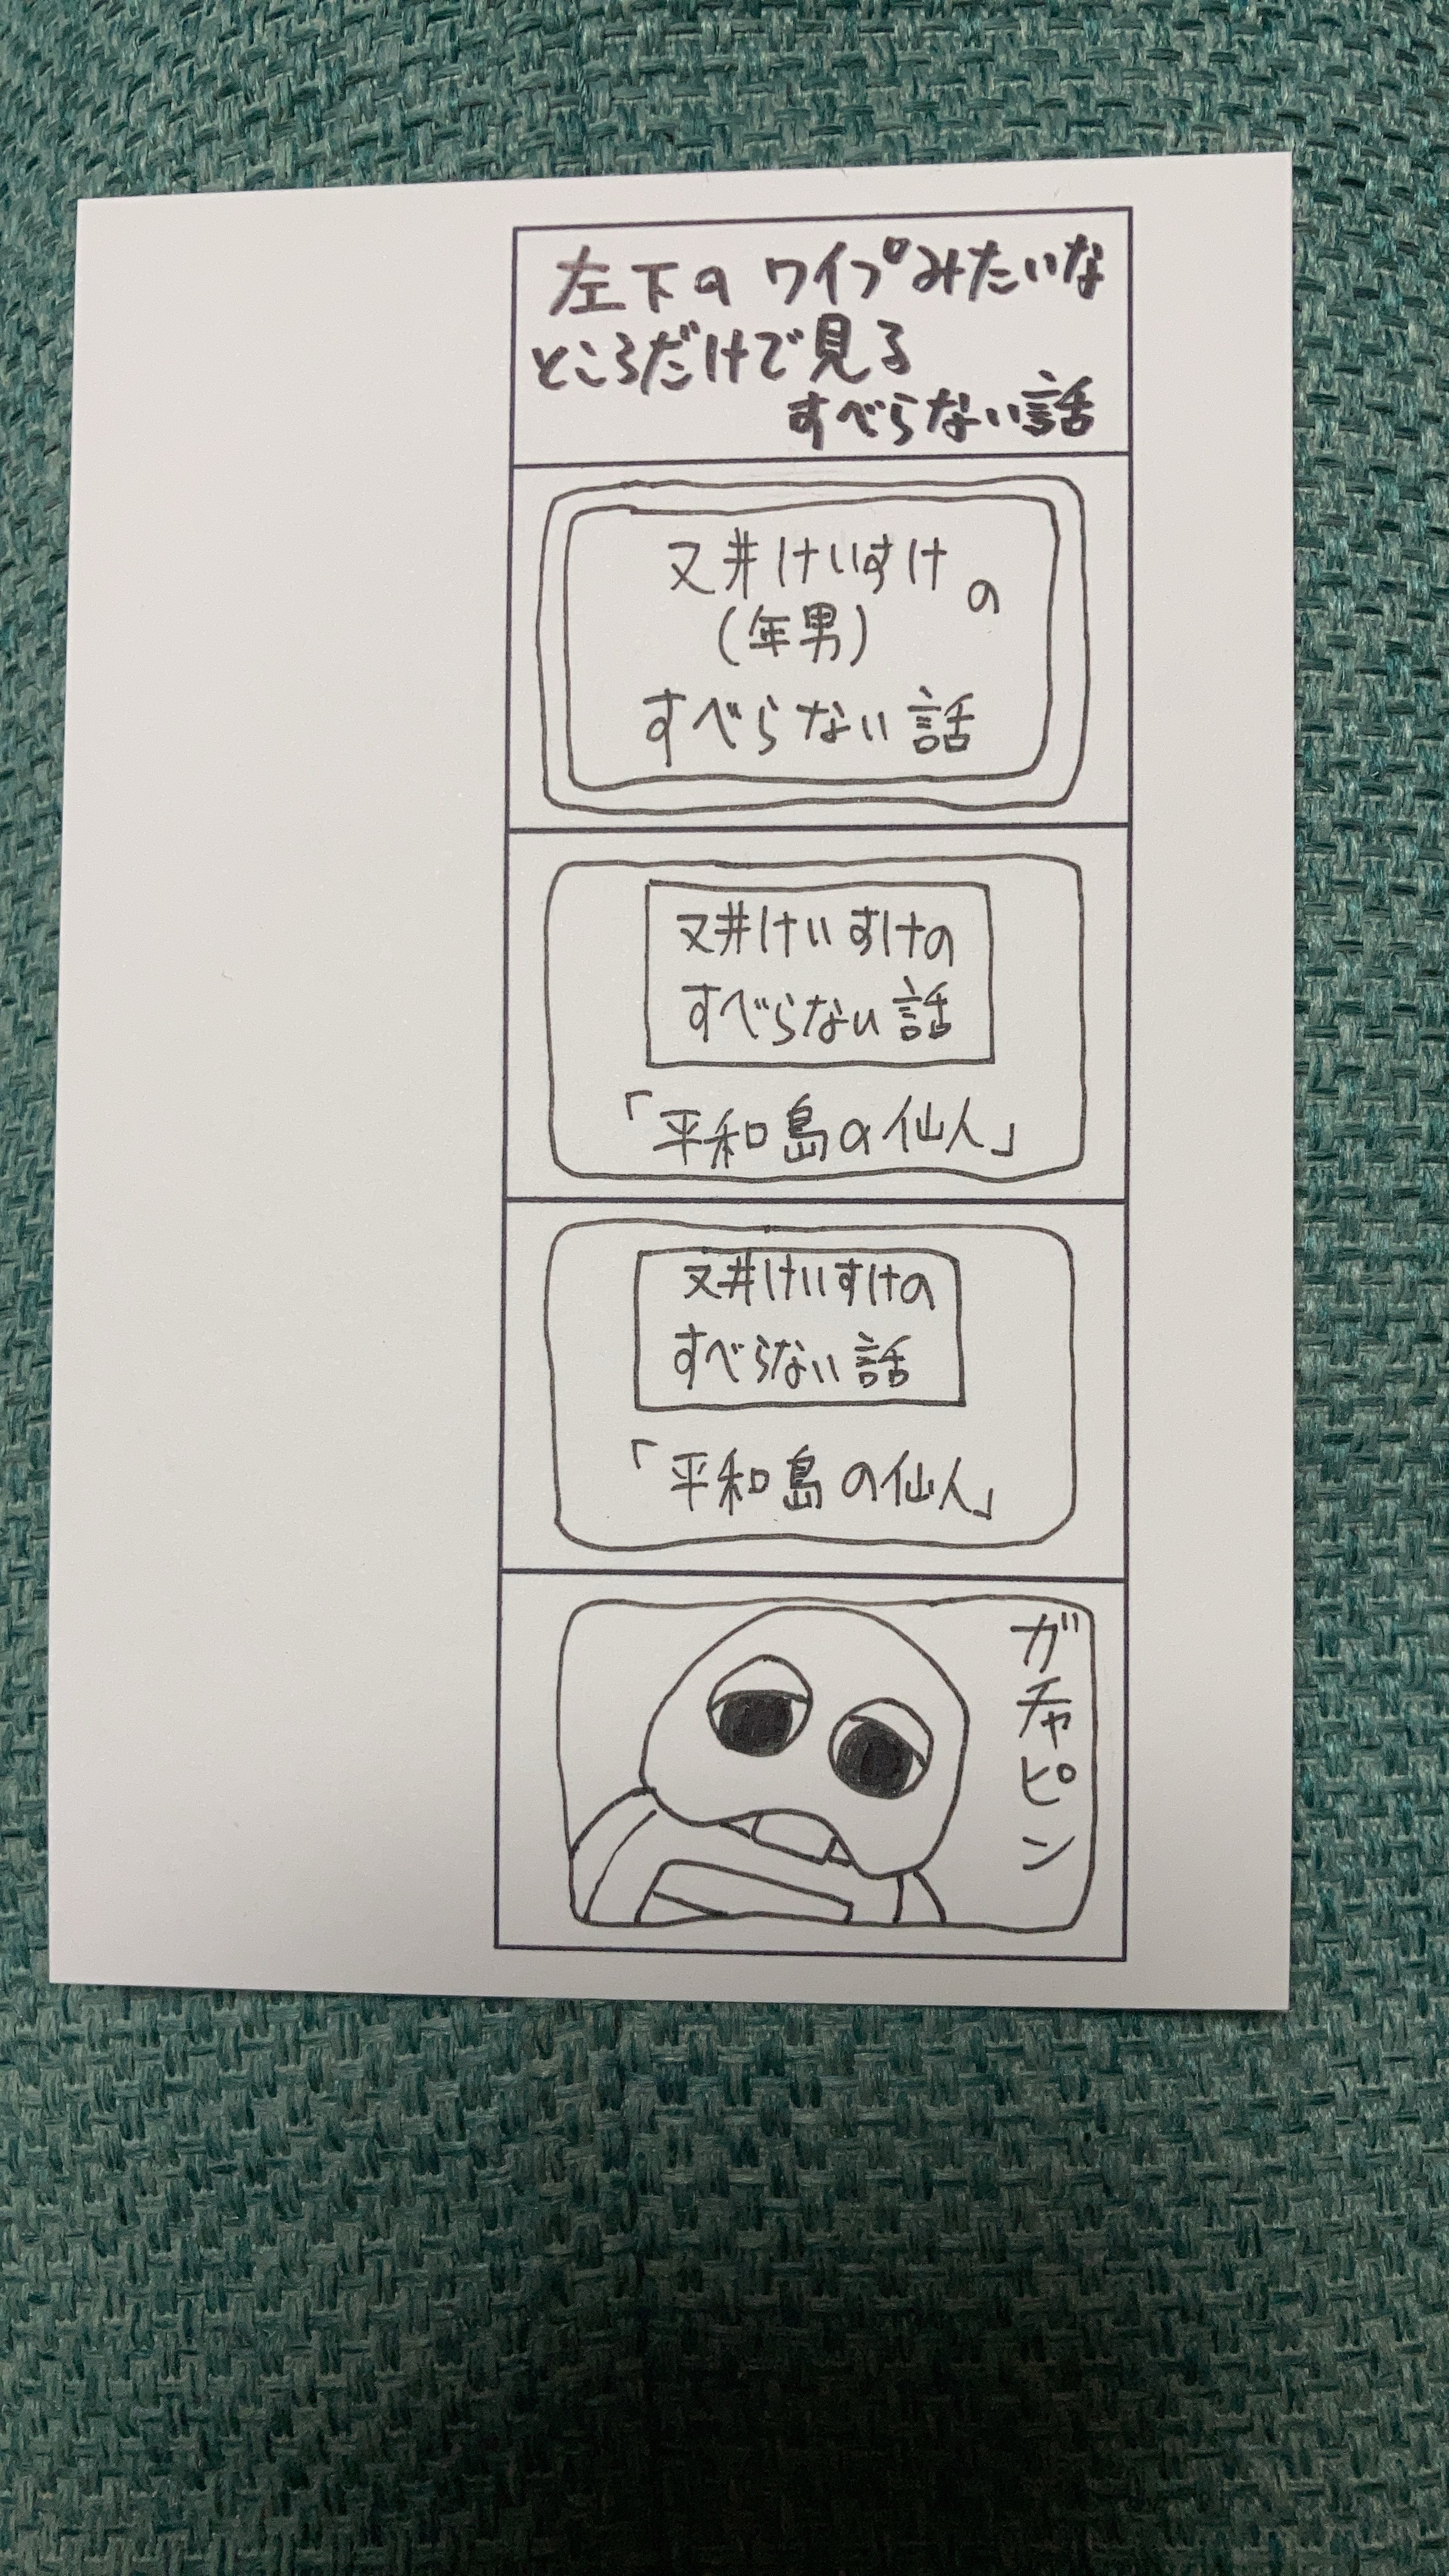 左下のワイプみたいな
ところだけで見る
すべらない話
又井けいすけの
(年男)
すべらない話
又井けいすけの
すべらない話
「平和島の仙人」
又井けいすけの
すべらない話
「平和島の仙人」
ガチャピン